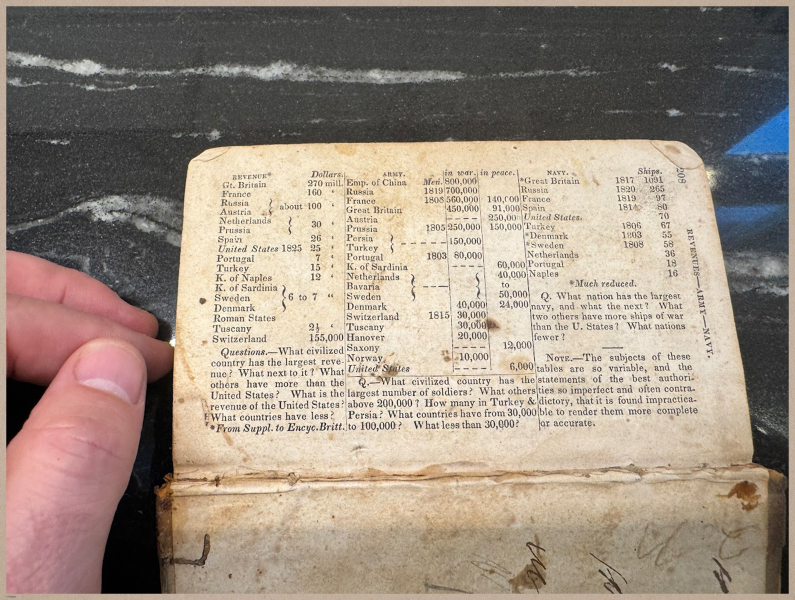 208
REVENUES—ARMY—NAVY.
REVENUE* Dollars.
Gt. Britain 270 mill.
France 160 "
Russia
Austria } about 100 "
Netherlands
Prussia } 30 "
Spain 26 "
United States 1825 25 "
Portugal 7 "
Turkey 15 "
K. of Naples 12 "
K. of Sardinia
Sweden } 6 to 7 "
Denmark
Roman States
Tuscany 2½ "
Switzerland 155,000
Questions.—What civilized
country has the largest reve-
nue? What next to it? What
others have more than the
United States? What is the
revenue of the United States?
What countries have less?
*From Suppl. to Encyc. Britt.
ARMY. in war. in peace.
Emp. of China Men. 800,000
Russia 1819 700,000
France 1808 560,000 140,000
Great Britain 450,000 91,000
Austria - - - - 250,00
Prussia 1805 250,000 150,000
Persia
Turkey } - - - - - 150,000
Portugal 1803 80,000
K. of Sardinia - - - - 60,000
Netherlands 40,000
Bavaria } —— { to
Sweden 50,000
Denmark 40,000 24,000
Switzerland 1815 30,000
Tuscany 30,000
Hanover 20,000
Saxony - - - - 12,000
Norway 10,000
United States - - - - 6,000
Q.—What civilized country has the
largest number of soldiers? What others
above 200,000? How many in Turkey &
Persia? What countries have from 30,000
to 100,000? What less than 30,000?
NAVY. Ships.
*Great Britain 1817 1091
Russia 1820 265
France 1819 97
Spain 1814 80
United States. 70
Turkey 1806 67
*Denmark 55
*Sweden 1808 58
Netherlands 36
Portugal 18
Naples 16
*Much reduced.
Q. What nation has the largest
navy, and what the next? What
two others have more ships of war
than the U. States? What nations
fewer?
NOTE.—The subjects of these
tables are so variable, and the
statements of the best authori-
ties so imperfect and often contra-
dictory, that it is found impractica-
ble to render them more complete
or accurate.